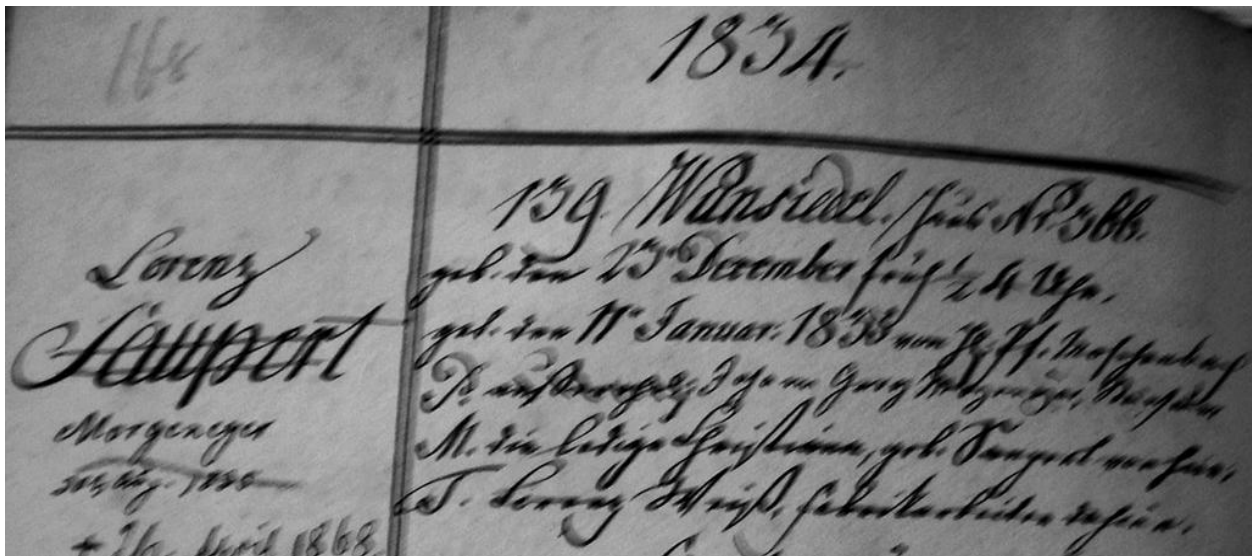 1834.
Lorenz
Saupert
Morgeneyer
+ 26. April 1868.
139. Wunsiedel. Haus Nr. 366.
geb. den 23n December früh ½ 4 Uhr.
get. den 11n Januar. 1835 von H. Pf.
P. außerehel. Johann Georg
M. die ledige Christiana, geb. Saupert von hier,
T. Lorenz Weiß, Fabrikarbeiter dahier.